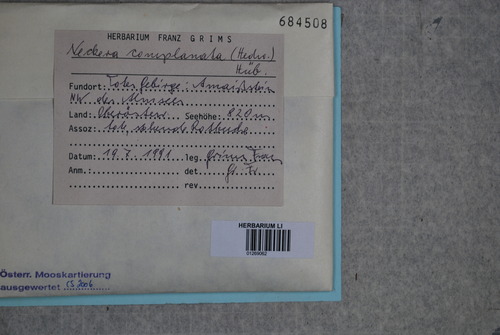 684508
HERBARIUM FRANZ GRIMS
Neckera complanata (Hedw.)
Hüb.
Fundort: Totes Gebirge:
NW. des Almsees
Land: Oberösterr. Seehöhe: 620m
Assoz:
Datum: 19.7.1981 leg. Grims Franz
Anm.: det. Gr. Fr.
rev.
HERBARIUM LI
Österr. Mooskartierung
ausgewertet